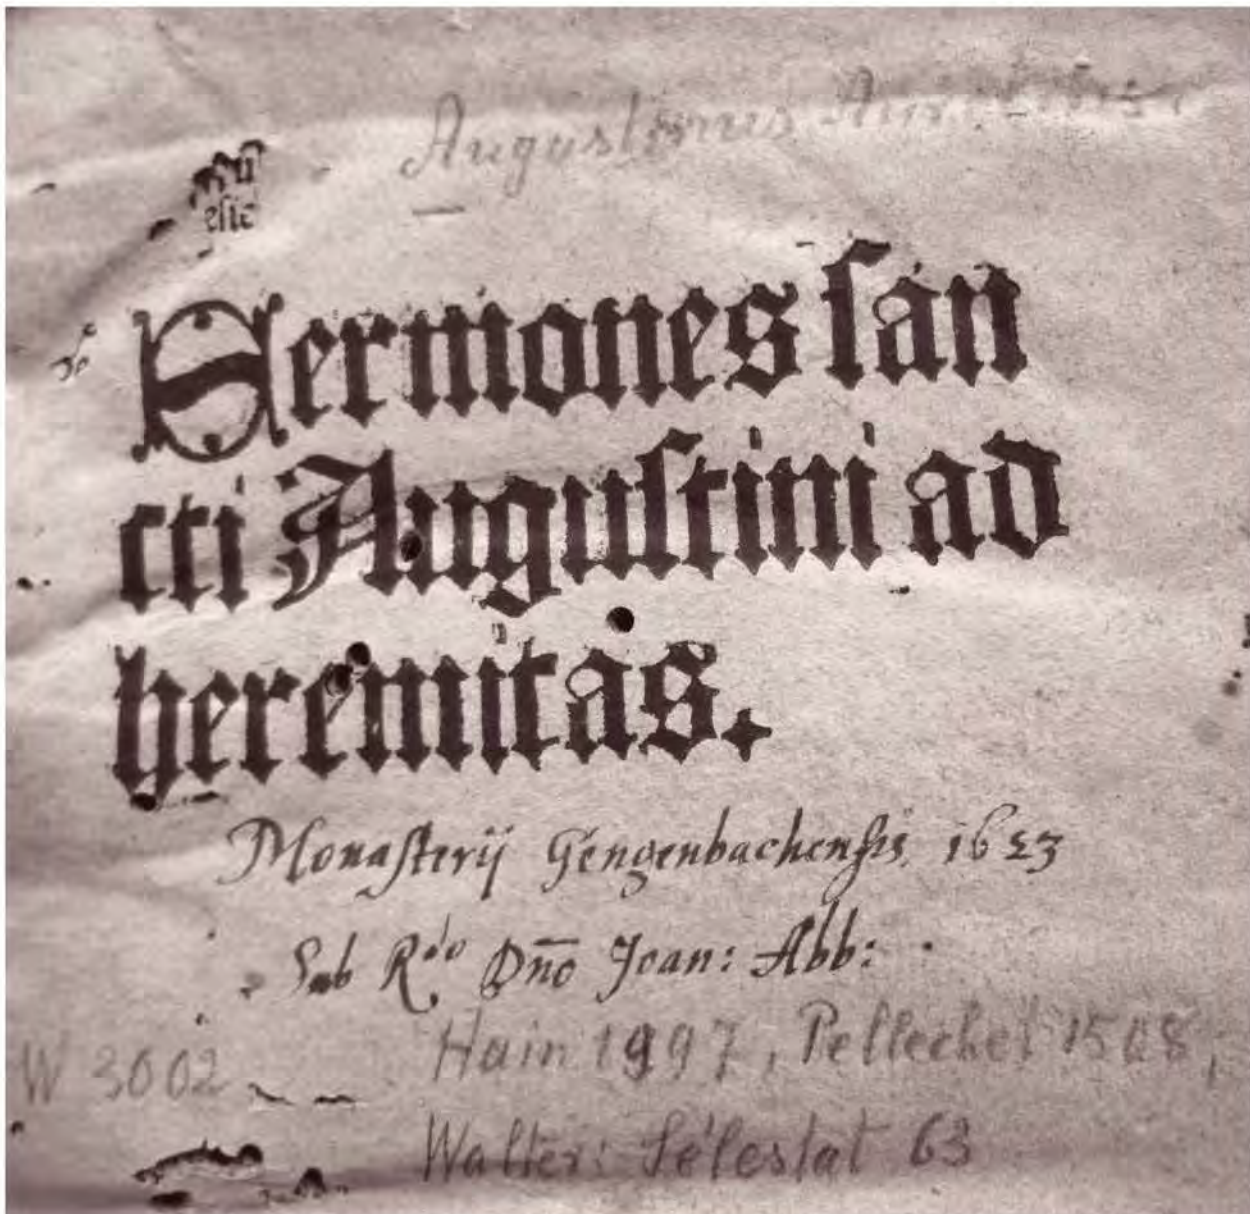 Augustinus
Sermones ſan
cti Auguſtini ad
heremitas.
Monaſterij Gengenbachenſis 1623
Sub R.do Dn̄o Joan: Abb:
W 3002
Hain 1997, Pellechet 1508,
Walter: Sélestat 63